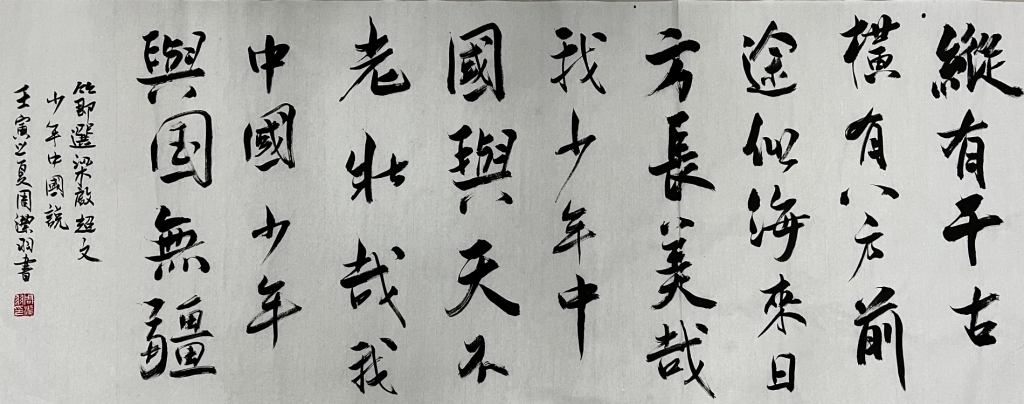 縱有千古
橫有八方前
途似海來日
方長美哉
我少年中
國與天不
老壯哉我
中國少年
與国無疆
節選梁啟超文
少年中國說
壬寅之夏周榮羽書